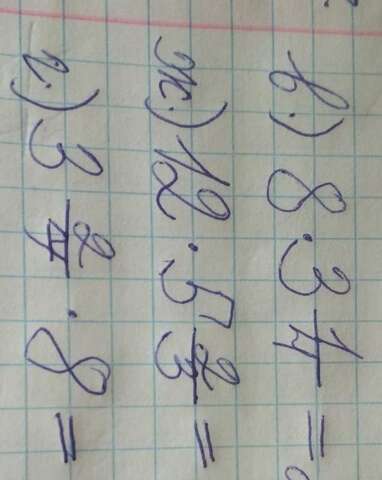 в.) 8 · 3 1/4 =
ж.) 12 · 5 2/3 =
г.) 3 2/4 · 8 =